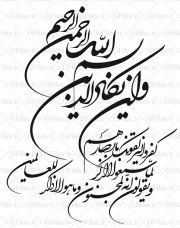 بسم الله الرحمن الرحیم
وان یکاد الذین
کفروا لیزلقونک بابصارهم
لما سمعوا الذکر
و یقولون انه لمجنون و ما هو الا ذکر للعالمین
GFiles.ir